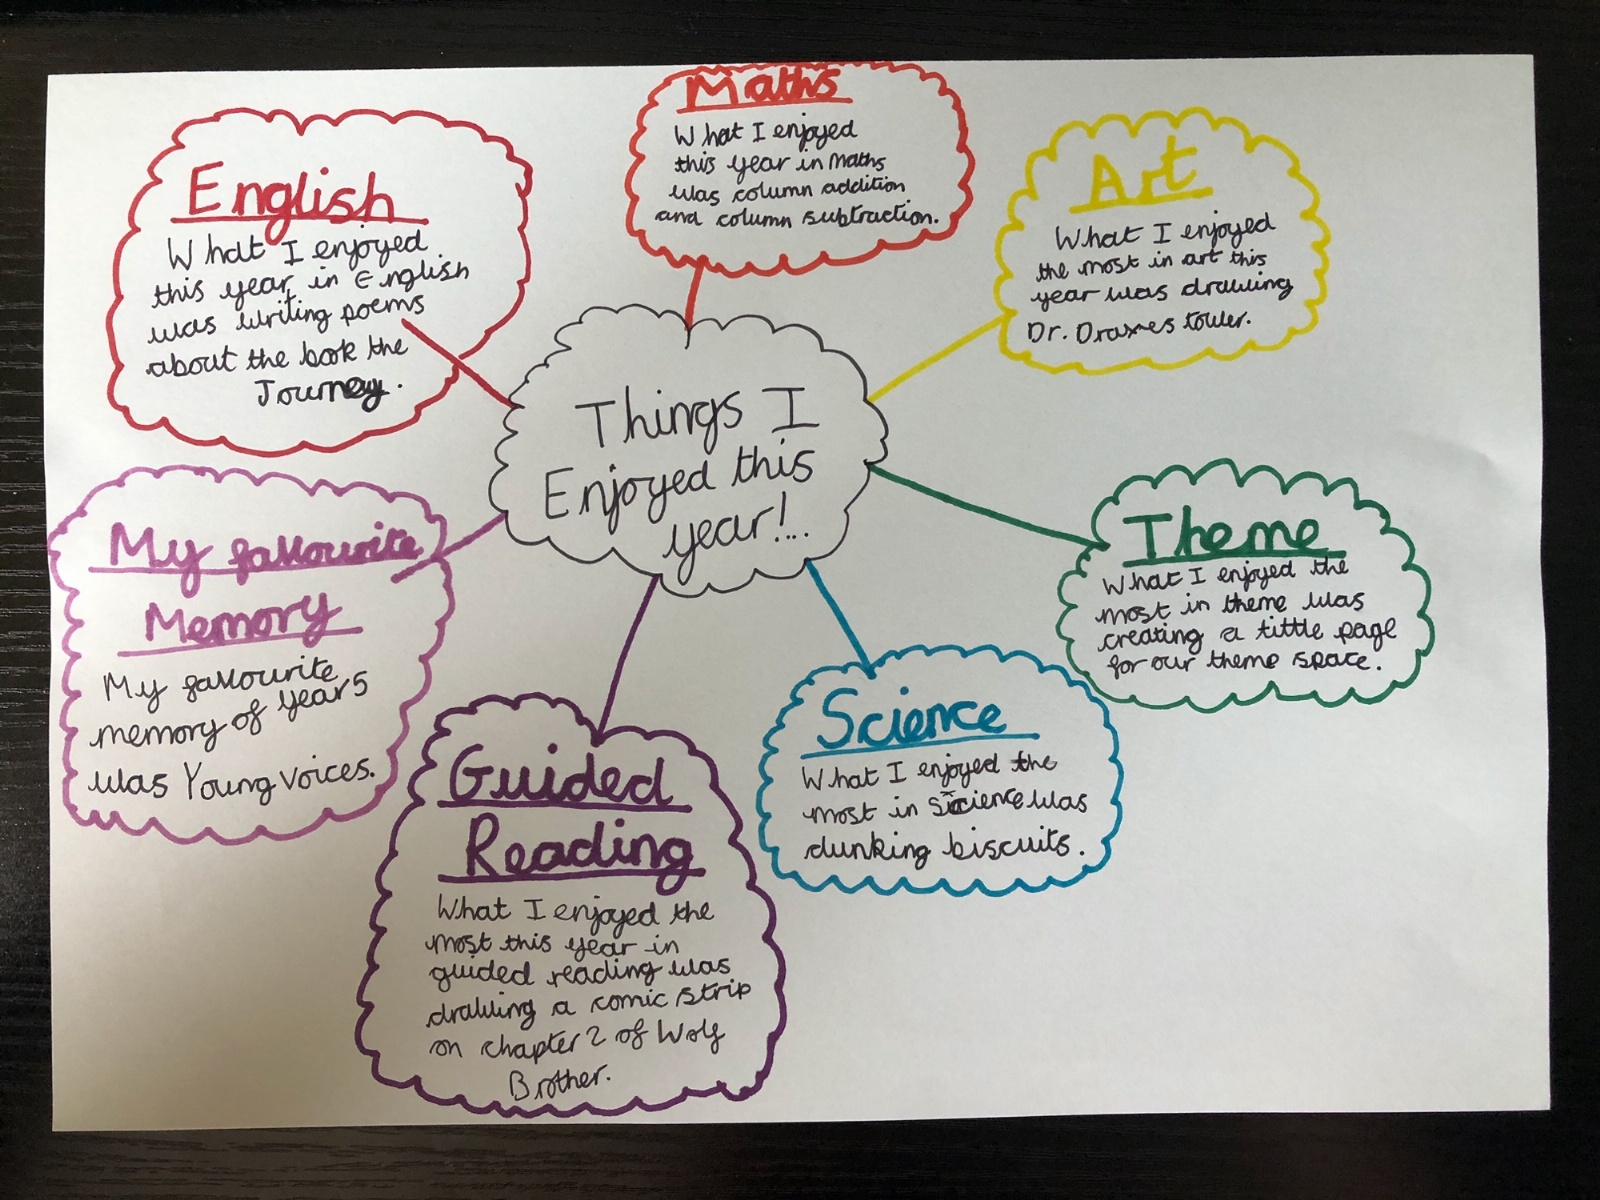 Things I
Enjoyed this
year!...
English
What I enjoyed
this year in English
was writing poems
about the book the
Journey.
Maths
What I enjoyed
this year in Maths
was column addition
and column subtraction.
Art
What I enjoyed
the most in art this
year was drawing
Dr. Draxes tower.
Theme
What I enjoyed the
most in theme was
creating a tittle page
for our theme space.
Science
What I enjoyed the
most in science was
dunking biscuits.
Guided
Reading
What I enjoyed the
most this year in
guided reading was
drawing a comic strip
on chapter 2 of Wolf
Brother.
My favourite
Memory
My favourite
memory of year 5
was Young voices.